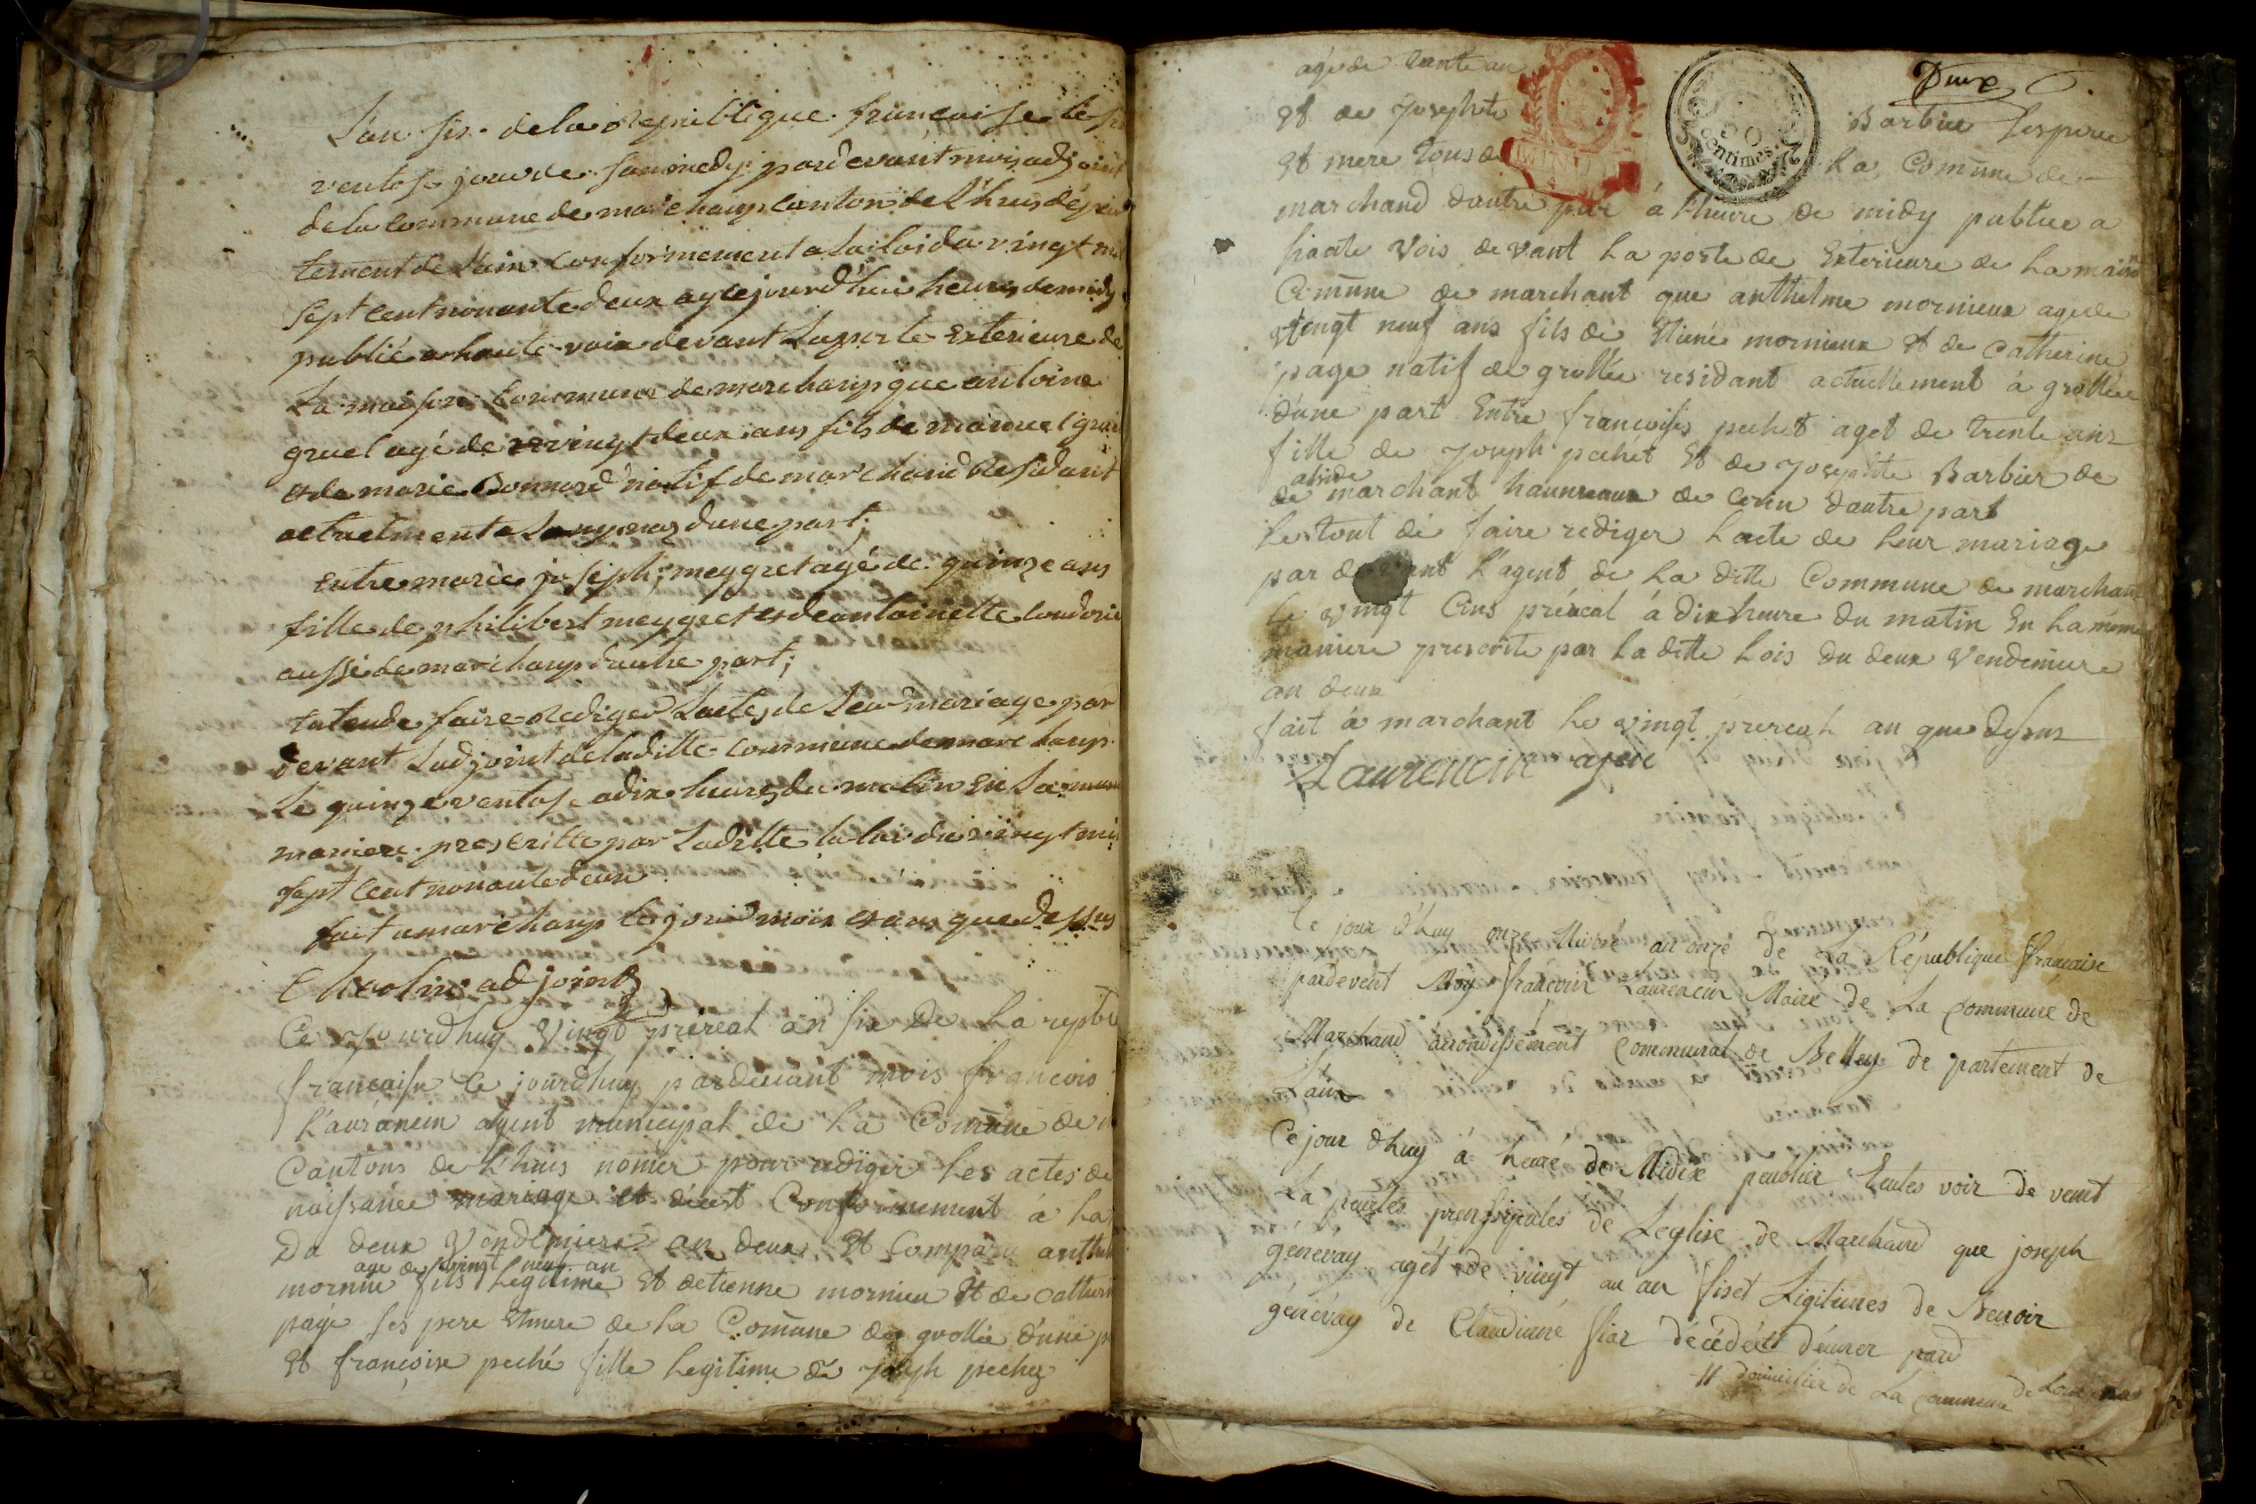 L'an six de la Republique française le
ventose jour de pardevant mois adjoint
de la commune de marchamp canton de Lhuis dépar
tement de Lain conformement a la loi du vingt
sept cent nonante deux ay cejourd'hui heures de midy
publié a haute voix devant la porte Exterieure de
La maison Commune de marchamp que antoine
gruel agé de vingt deux ans fils de
et de marie Bonnard natif de marchand Residant
actuelment a d'une part;
Entre marie joseph; meygret agé de quinze ans
fille de philibert meygret et de antoinette
aussi de marchamp d'autre part;
faire Rediger Lacte de Leur mariage par
devant Ladjoint de laditte commune de marchamp
Le quinze ventose a dix heures du matin En La meme
maniere prescritte par Laditte la loi du vingt
sept cent nonante deux
fait a marchamp le jour mois et an que dessus
adjoint
Ce Jourdhuy vingt prereal an six De La repbl
francaise Ce jourdhuy pardevant mois francois
Lauranein agent municipal de La Comune de
Cantons de Lhuis nomer pour redigir Les actes de
naissance mariage et décet Conformement á La
Du deux Vendemiere an deux Et Comparu anthel
age de vingt neuf an
morniu fils Legitime Et detienne mornieu Et de catheri
page ses pere Et mere de La Comune de grollie d'une p
Et francoise peché fille Legitime de Joseph pechez
Deux
agé de trante an
Et de Josephte Barbier ses pere
Et mere tous de La Comune de
centimes
marchand dautre par á Lheure de midy publiee a
haute vois devant La porte de Exterieure de La maison
Comune de marchant que anthelme mornieux age de
vingt neuf ans fils de Etiene mornieux et de Catherine
page natif de grollée residant actuellement á grollée
dune part Entre francoises pechet aget de trente ans
fille de Joseph pechet Et de Josephte Barbier de
de marchant haumeaux de Cerin dautre part
Les tont de faire rediger Lacte de Leur mariage
par devant L'agent de La ditte Commune de marchant
le vingt Cins préreal á dix heure du matin En La meme
maniere prescrite par La ditte Lois du deux Vendemiere
an deux
fait á marchant Le vingt prereal an que desus
Laurencin agent
Ce jour d'huy onze Nivose an onze de La République française
pardevent Moy françoir Laurencin Maire de La commune de
Marchand arrondissement communal de Belley de partement de
Lain
Ce jour dhuy á heure de Midix peublier heutes voir de vent
La peurtes prensipales de Leglise de Marchand que joseph
génévay aget de vingt au an fiset Legitimes de Benoir
génévay de Claudinne décédéet d'eunes pard
domicilier de La commune de